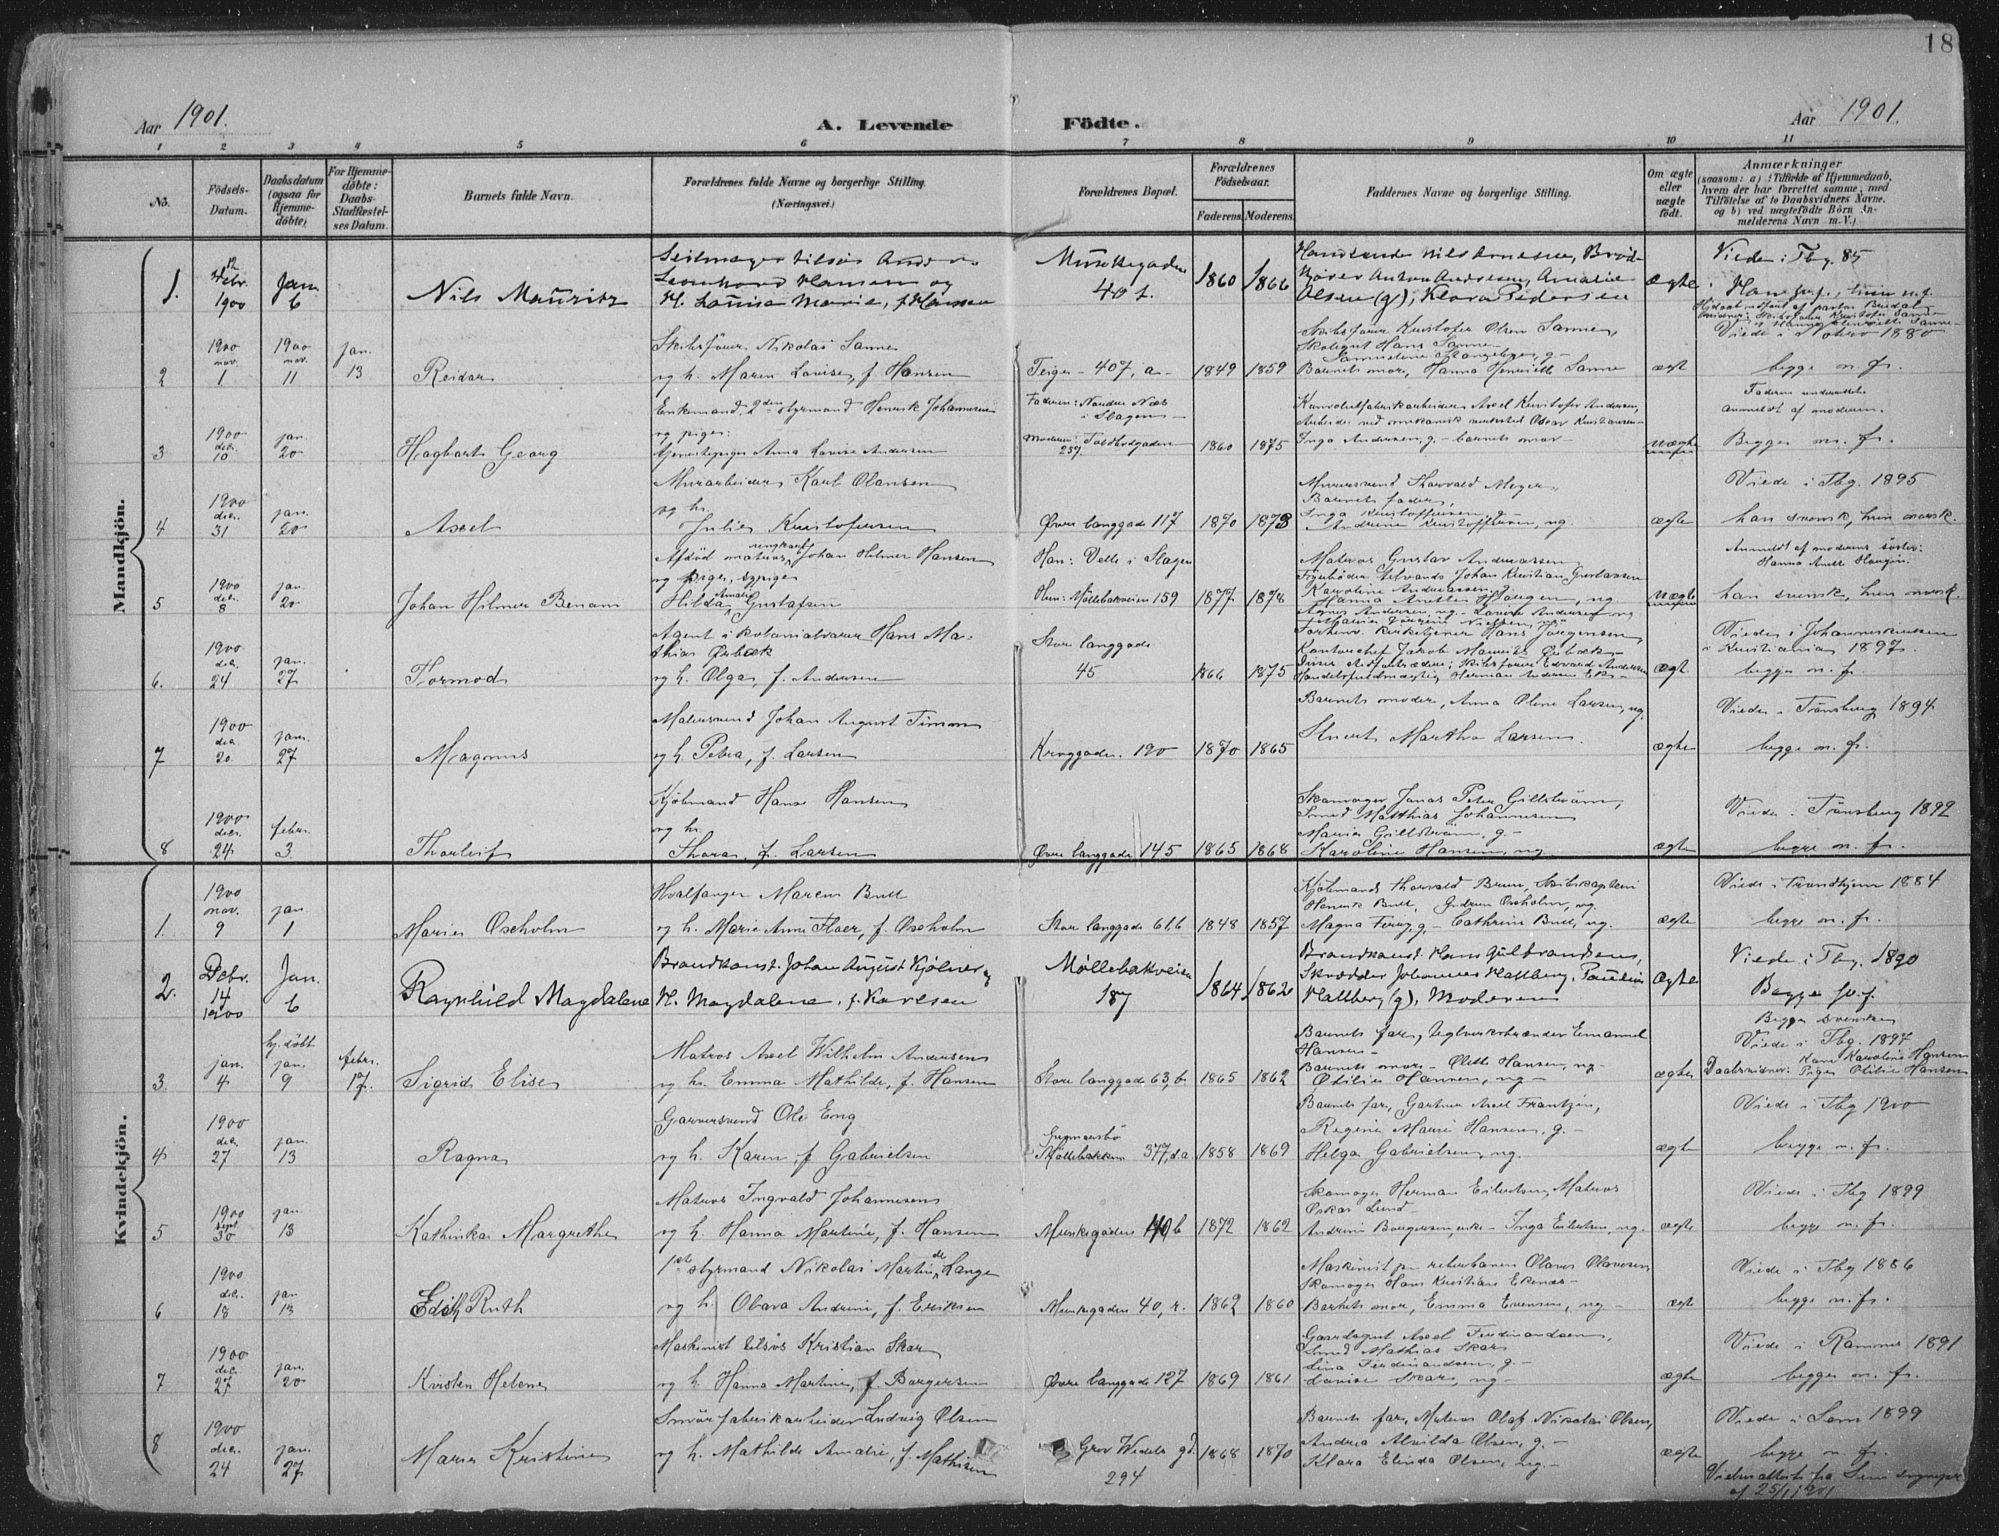 18
Aar 1901.
A. Levende Födte.
Aar 1901.
1 2 3 4 5 6 7 8 9 10 11
No.
Födsels-Datum.
Daabsdatum (ogsaa for Hjemmedöbte)
For Hjemmedöbte: Daabs-Stadfæstelses Datum.
Barnets fulde Navn.
Forældrenes fulde Navne og borgerlige Stilling. (Næringsvei.)
Forældrenes Bopæl.
Forældrenes Födselsaar.
Faderens. Moderens.
Faddernes Navne og borgerlige Stilling.
Om ægte eller uægte födt.
Anmærkninger
(saasom: a) i Tilfælde af Hjemmedaab, hvem der har forrettet samme, med Tilföielse af to Daabsvidners Navne, og b) ved uægtefödte Börn Anmelderens Navn m. V.)
Mandkjön.
1. 12 Febr. 1900 Jan. 6 Nils Mauritz
Leonhard Hansen og
H. Louise Marie, f. Hansen
40 f. 1860 1866
Olsen (g); Klara Pedersen
ægte
Viede i Tbg. 85
2 1900 nov. 1 1900 nov. 11 jan. 13 Reidar
Skibsförer Nikolai Sanne
og h. Maren Lovise, f. Hansen
Teigen 407, a 1849 1859
Skibsförer Kristofer Olsen Sanne,
Barnets mor, Hanna Henriette Sanne
ægte
begge n. fr.
3 1900 decr. 10 jan. 20 Hagbart Georg
Enkemand, 2den styrmand Henrik Johannesen
og pige:
tjenestepige Anna Lovise Andersen
Faderen: Nordre Næs i Slagen
Moderen: Toldbodgaden 259 1860 1875
Inga Andersen, g. - barnets mor
uægte
Begge n. fr.
4 1900 decr. 31 jan. 20 Axel
Murarbeider Karl Olausen
og h.
Julie Kristofersen
Övre langgade 117 1870 1873
Murersvend Thorvald Meyer
Barnets fader,
Inga Kristoffersen, g.
Andrine Kristoffersen, ug.
ægte
Viede i Tbg. 1895
han svensk, hun norsk.
5 1900 decr. 8 jan. 20 Johan Hilmer Benoni
Johan Hilmer Hansen
og pige, sypige
Hilda Amalie Gustafsen
Han: Velle i Slagen
Hun: Möllebakveien 159 1877 1878
Matros Gustav Andreassen
Johan Kristian Gustavsen
Karoline Andreassen, g.
uægte
Anmeldt af moderens søster:
Hanna Anette Haugen.
han svensk, hun norsk.
6. 1900 decr. 24 jan. 27 Tormod
Agent i kolonialvarer Hans Mathias Örbæk
og h. Olga, f. Andersen
Store langgade
45 1866 1875
Forhenv. kirketjener Hans Jörgensen,
Kontorchef Jakob Mauritz Örbæk
ægte
i Kristiania 1897.
begge n. fr.
7 1900 dec. 20. jan. 27 Magnus
Malersvend Johan August Timan
og h. Petra, f. Larsen
Kroggaden 190 1870 1865
Barnets moder, Anna Oline Larsen, ug.
Martha Larsen
ægte
Viede i Tønsberg 1894
begge n. fr.
8 1900 decr. 24 febr. 3 Thorleif
Kjöbmand Hans Hansen
og h.
Thora, f. Larsen
Övre langgade 145 1865 1868
Skomager Jonas Peter Gillström,
Smed Matthias Johannesen
Maria Gillström, g.
Karoline Hansen, ug.
ægte
Viede i Tønsberg 1892
begge n. fr.
Kvindekjön.
1. 1900 nov. 9 jan. 1 Marie Oxholm
Hvalfanger Marcus Bull
og h. Marie Anne Floer, f. Oxholm
Store langgade 61b 1848 1857
Kjöbmand Thorvald Brun, Skibskaptein
Henrik Bull, Gudrun Oxholm, ug.
Cathrine Bull, ug.
ægte
Viede i Trondhjem 1884
begge n. fr.
2. Decbr. 14 1900 Jan. 6 Ragnhild Magdalene
Brandkonst. Johan August Kjölner og
H. Magdalene, f. Karlsen
Møllebakveien
187 1864 1862
Brandkonst. Hans Gulbrandsen,
Skrædder Johannes Hallberg, Pauline
Hallberg (g), Moderen
ægte
Viede i Tbg. 1890
3. jan. 4 hj. döbt jan. 9 febr. 17. Sigrid Elise
Matros Axel Wilhelm Andersen
og h. Emma Mathilde, f. Hansen
Store langgade 63, b 1865 1862
Barnets far, Teglverksbrænder Emanuel Hansen
Barnets mor - Olette Hansen, ug.
Otilie Hansen, ug.
ægte
Begge svenske
Viede i Tbg. 1897
Daabsvidner: Kone Karoline Hansen
Pige Otilie Hansen
4 1900 decr. 27 jan. 13 Ragna
Garversvend Ole Eng
og h. Karen f. Gabrielsen
Möllebakken 377, d.a. 1858 1869
Barnets far, Gartner Axel Frantzen,
Regine Marie Hansen, g.
Helga Gabrielsen, ug.
ægte
Viede i Tbg 1900
begge n. fr.
5 1900 sept. 30 jan. 13 Kathinka Margrethe
Matros Ingvald Johannesen
og h. Hanna Martine, f. Hansen
Munkegaden 40b 1872 1862
Skomager Herman Eilertsen, Matros
Oskar Lund
Andrine Borgersen, enke - Inga Eilertsen, ug.
ægte
Viede i Tbg 1899
begge n. fr.
6 1900 dec. 18 jan 13 Edith Ruth
1ste styrmand Nikolai Martin de Lange
og h. Olava Andrine, f. Eriksen
Munkegaden 40, r. 1862 1860
Maskinist på reberbanen Olavus Olavesen,
Skomager Hans Kristian Ekenæs
Barnets mor, Emma Evensen, ug.
ægte
Viede i Tbg 1886
begge n. fr.
7 1900 dec. 27 jan. 20 Kirsten Helene
Maskinist tilsös Kristian Skar
og h. Hanna Martine, f. Borgersen
Övre langgade 127 1869 1861
Gaardsgut Axel Ferdinandsen,
Smed Mathias Skar
Lina Ferdinandsen, g.
Lovise Skar, ug.
ægte
Viede i Ramnes 1891
begge n. fr.
8 1900 decr. 24 jan. 27 Marie Kristine
Smörfabrikarbeider Ludvig Olsen
og h. Mathilde Amalie, f. Mathisen
Grev Wedels gd.
294 1868 1870
Barnets far, Matros Olaf Nikolai Olsen,
Andrea Alvilda Olsen, g.
Klara Elinda Olsen, ug.
ægte
Viede i Sem 1899
begge n. fr.
Vielsesattest fra Sem sognepr.
af 25/1 1901